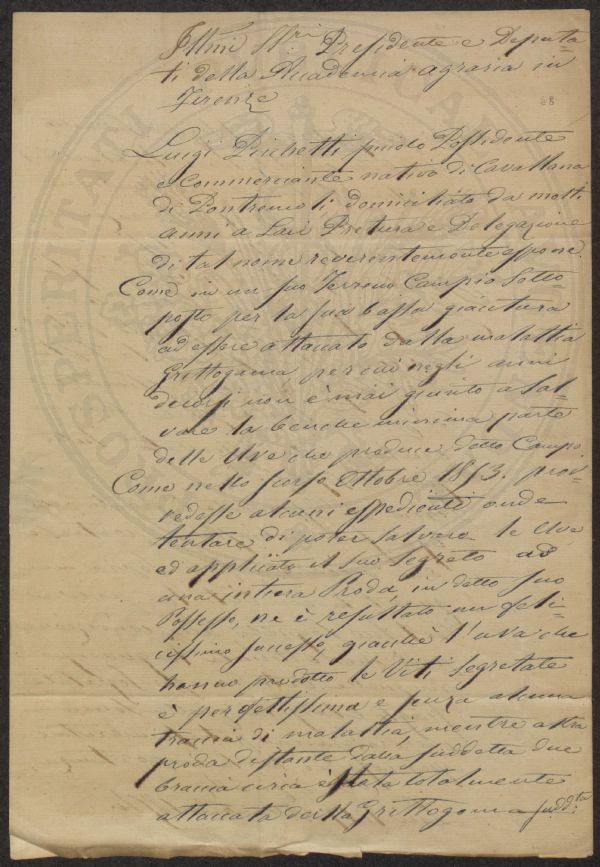 Illmi Sri Presidente e Deputa-
ti della Accademia agraria in
Firenze
Luigi Pichetti piccolo Possidente
e Commerciante nativo di Cavallana
di Pontremoli domiciliato da molti
anni a Lari Pretura e Delegazione
di tal nome reverentemente espone.
Come in un suo Terreno Campio Sotto-
posto per la sua bassa giacitura
ad essere attaccato dalla malattia
Grittogama per cui negli anni
decorsi non è mai giunto a Sal-
vare la benche minima parte
delle Uve che produce detto Campo.
Come nello scorso Ottobre 1853. prov-
vedesse alcuni espedienti onde
tentare di poter salvare le Uve,
ed applicato il suo Segreto ad
una intiera Proda, in detto suo
Possesso, ne è resultato un feli-
cissimo successo, giacchè l'uva che
hanno prodotto le Viti Segretate
è perfettissima e senza alcuna
traccia di malattia, mentre altra
proda distante dalla suddetta due
braccia circa è stata totalmente
attaccata della Grittogama sudd:ta